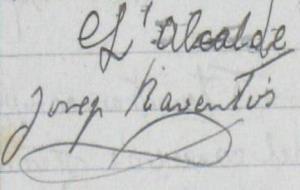 L'alcalde
Josep Raventós